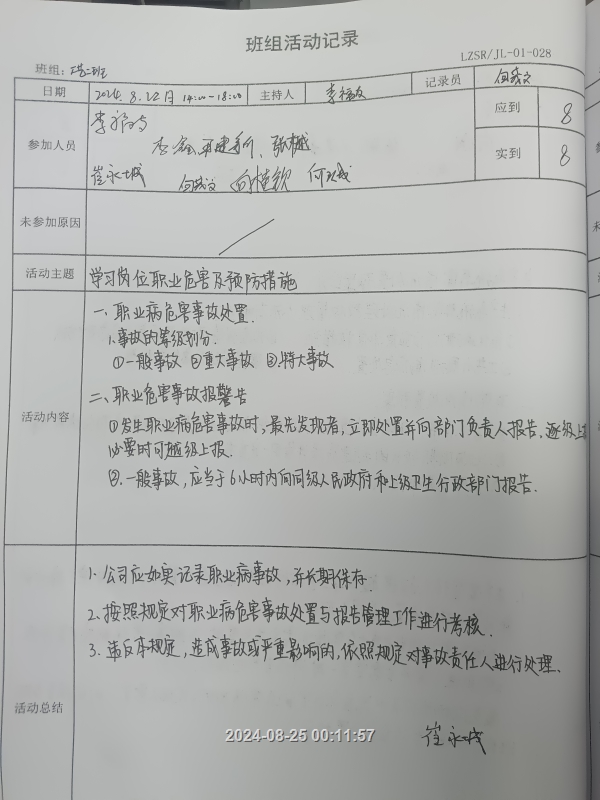 班组活动记录
LZSR/JL-01-028
班组: 班
日期 2024.8.22日 14:00-18:00 主持人 记录员
参加人员
应到 8
实到 8
李鑫
崔永城
未参加原因
活动主题 学习岗位职业危害及预防措施
活动内容
一、职业病危害事故处置
1.事故的等级划分.
①一般事故 ②重大事故 ③特大事故
二、职业危害事故报警告
①发生职业病危害事故时,最先发现者,立即处置并向部门负责人报告.逐级上
必要时可越级上报.
②.一般事故,应当于6小时内向同级人民政府和上级卫生行政部门报告.
活动总结
1.公司应如实记录职业病事故,并长期保存.
2.按照规定对职业病危害事故处置与报告管理工作进行考核.
3.违反本规定,造成事故或严重影响的,依照规定对事故责任人进行处理.
崔永城
2024-08-25 00:11:57